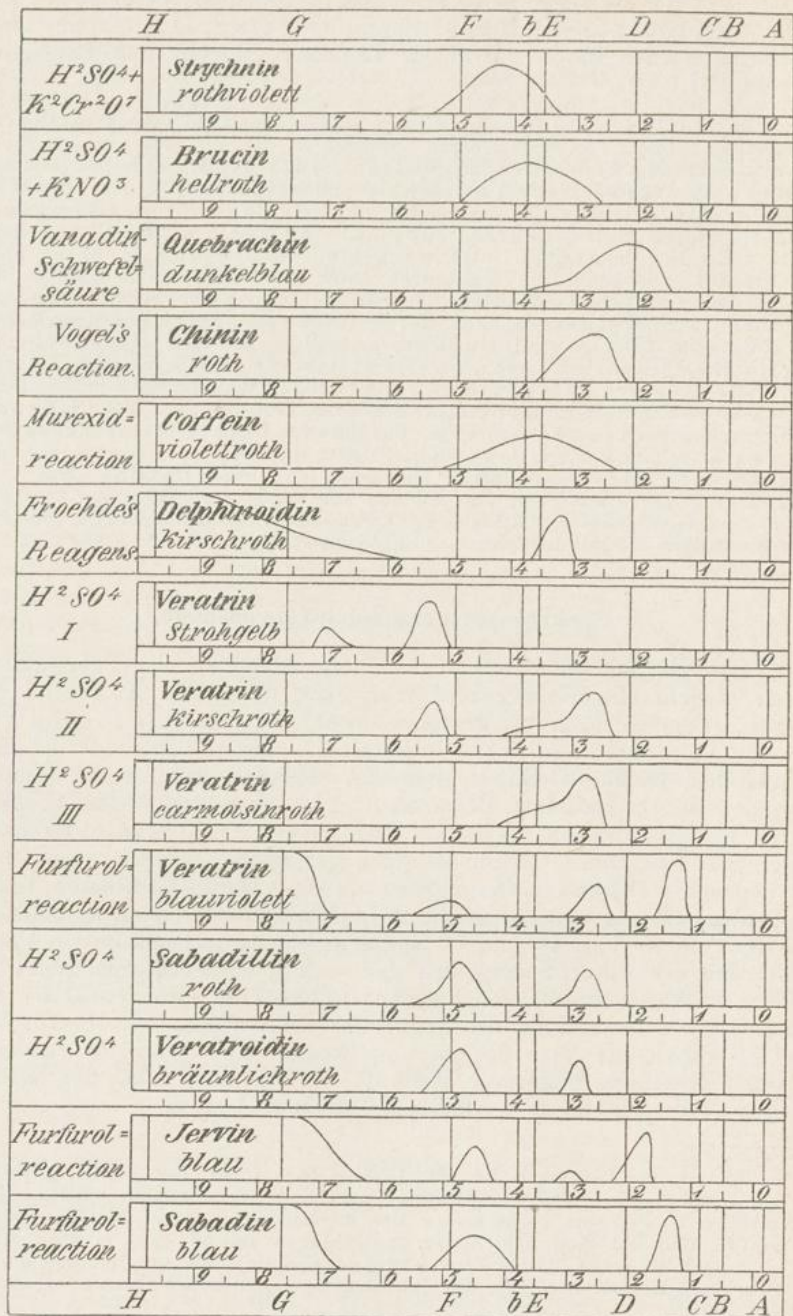 H G F b E D C B A
H²SO⁴+
K²Cr²O⁷
Strychnin
rothviolett
9 8 7 6 5 4 3 2 1 0
H²SO⁴
+KNO³
Brucin
hellroth
9 8 7 6 5 4 3 2 1 0
Vanadin-
Schwefel=
säure
Quebrachin
dunkelblau
9 8 7 6 5 4 3 2 1 0
Vogel's
Reaction.
Chinin
roth
9 8 7 6 5 4 3 2 1 0
Murexid=
reaction
Coffein
violettroth
9 8 7 6 5 4 3 2 1 0
Froehde's
Reagens
Delphinoidin
kirschroth
9 8 7 6 5 4 3 2 1 0
H²SO⁴
I
Veratrin
Strohgelb
9 8 7 6 5 4 3 2 1 0
H²SO⁴
II
Veratrin
kirschroth
9 8 7 6 5 4 3 2 1 0
H²SO⁴
III
Veratrin
carmoisinroth
9 8 7 6 5 4 3 2 1 0
Furfurol=
reaction
Veratrin
blauviolett
9 8 7 6 5 4 3 2 1 0
H²SO⁴
Sabadillin
roth
9 8 7 6 5 4 3 2 1 0
H²SO⁴
Veratroidin
bräunlichroth
9 8 7 6 5 4 3 2 1 0
Furfurol=
reaction
Jervin
blau
9 8 7 6 5 4 3 2 1 0
Furfurol=
reaction
Sabadin
blau
9 8 7 6 5 4 3 2 1 0
H G F b E D C B A